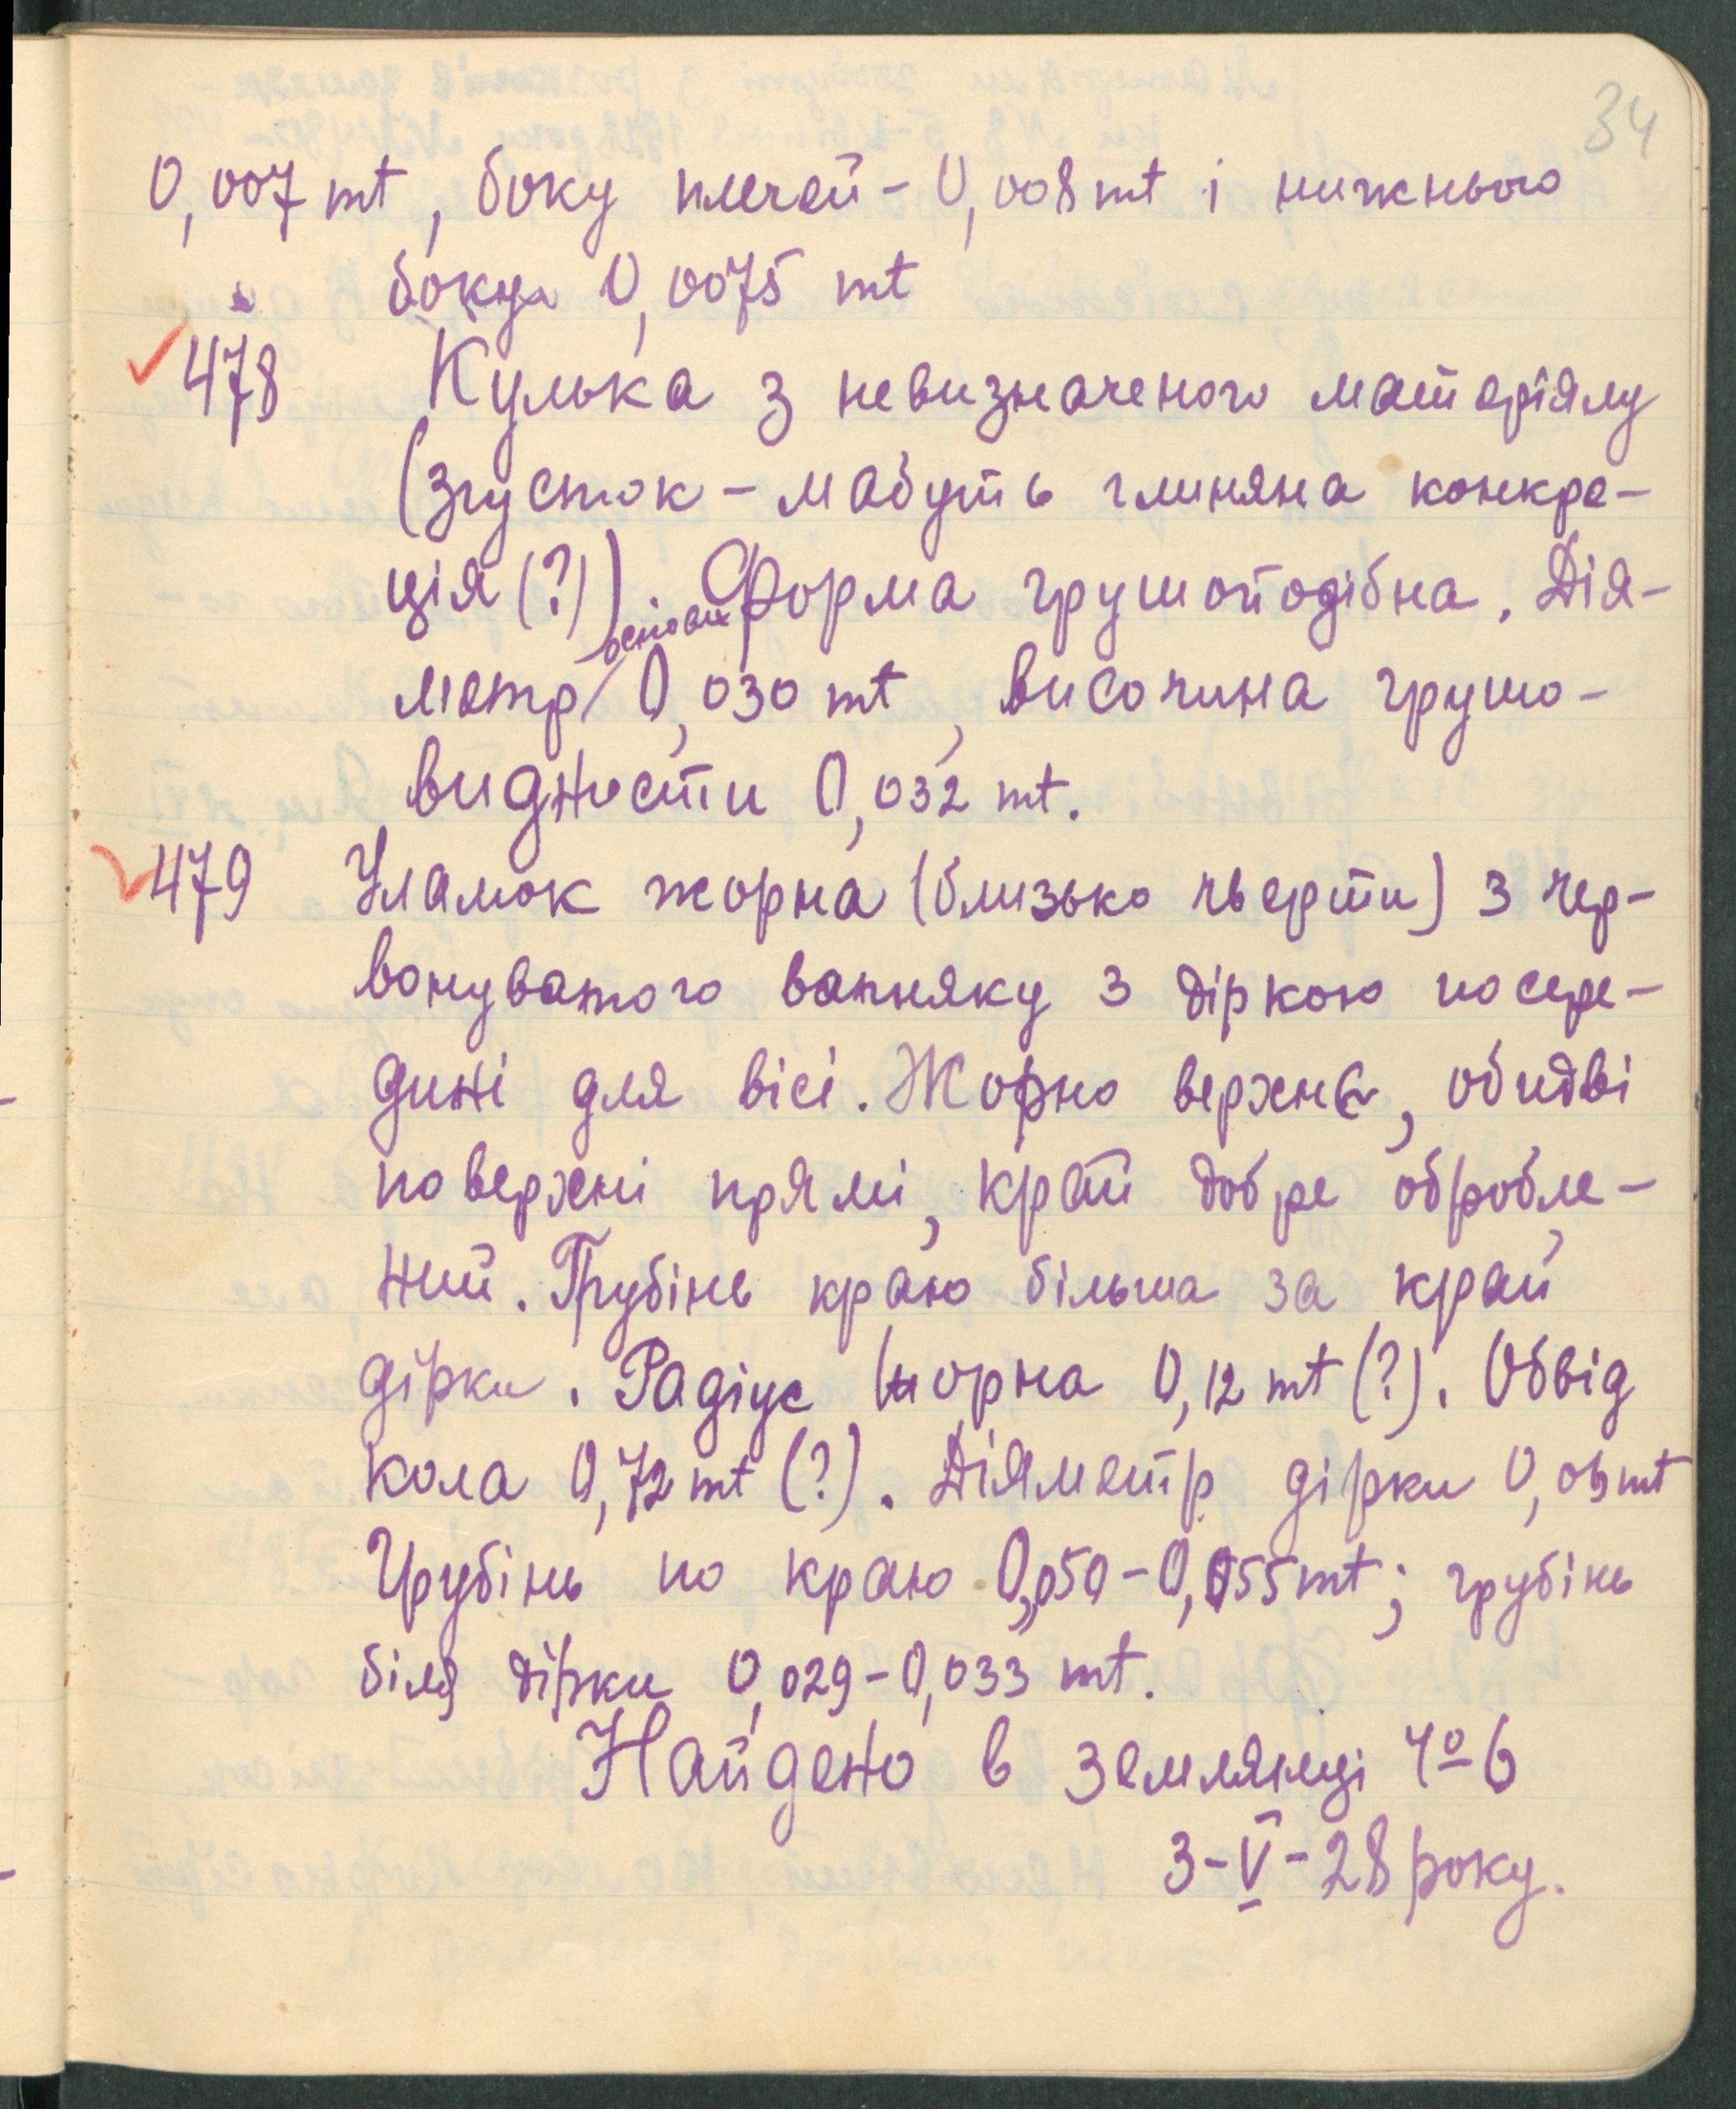 34
0,007 mt, боку плечей – 0,008 mt і нижнього
боку 0,0075 mt
478 Кулька з невизначеного матеріялу
(згусток – мабуть глиняна конкре-
ція (?)). Форма грушоподібна. Дія-
основи
метр 0,030 mt, височина грушо-
видности 0,032 mt.
479 Уламок жорна (близько чверти) з чер-
вонуватого вапняку з діркою посере-
дині для вісі. Жорно верхнє, обидві
поверхні прямі, край добре обробле-
ний. Грубінь краю більша за край
дірки. Радіус жорна 0,12 mt (?). Обвід
кола 0,72 mt (?). Діяметр дірки 0,03 mt
Грубінь по краю 0,050 – 0,055 mt; грубінь
біля дірки 0,029 – 0,033 mt.
Найдено в землянці чо 6
3 – V – 28 року.